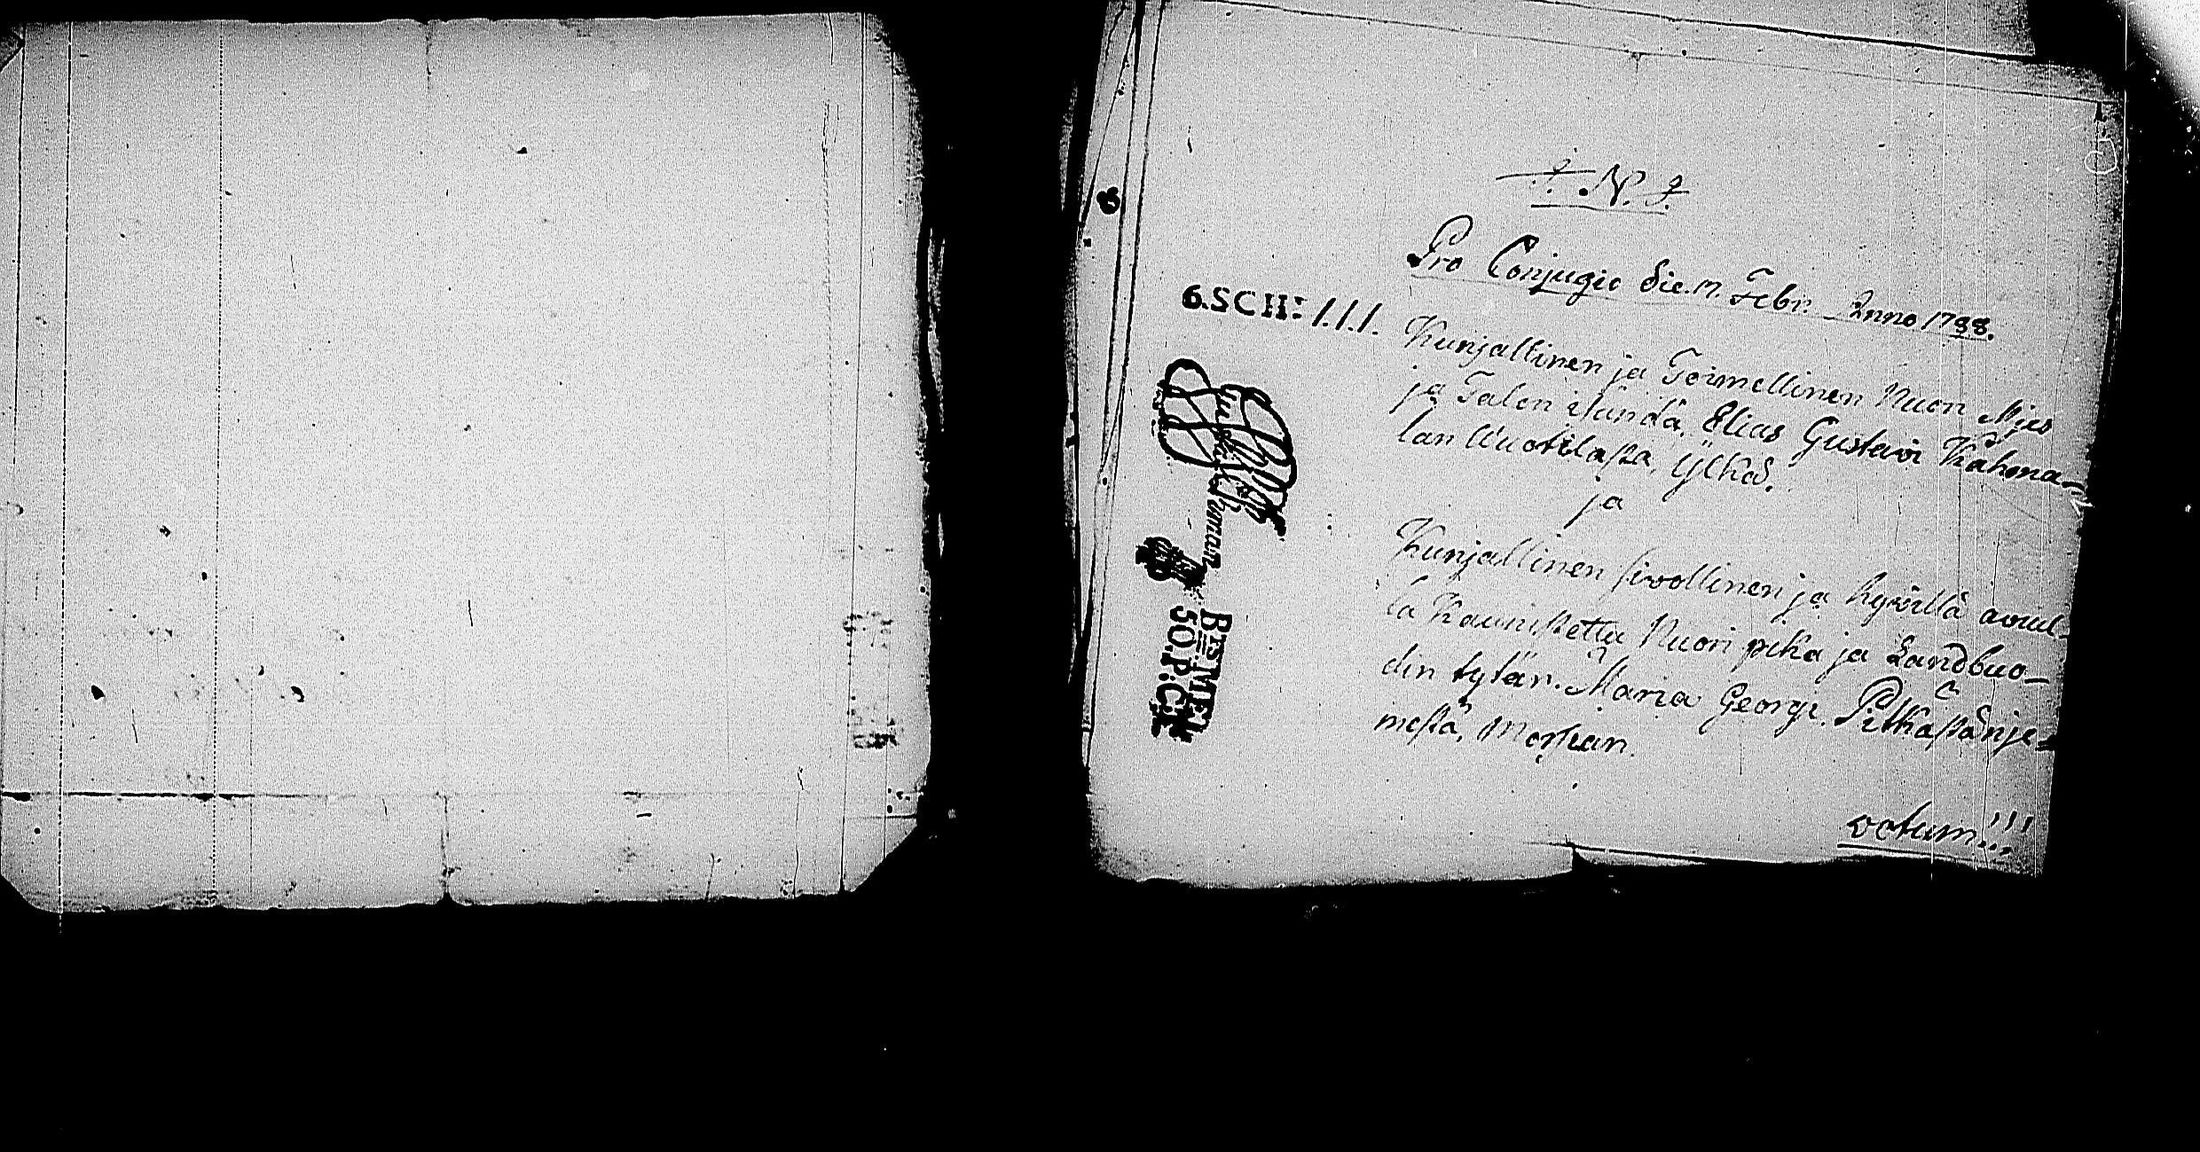 N. 9.
Pro Conjugio die. 17. Febr. Anno 1788.
6.SCH: 1.1.1.
Kunjallinen ja Toimellinen Nuori Mies
ja Talon isändä, Elias Gustavi Kahma-
lan Wuotilasta, Ylkä.
ja
Kunjallinen siwollinen ja hywillä awuil-
la Kaunistettu Nuori pika ja Landbuo-
din tytär. Maria Georgi. Pitkästänje-
mestä, Morsian.
votum!!!
BTS MEM
50.P.C.